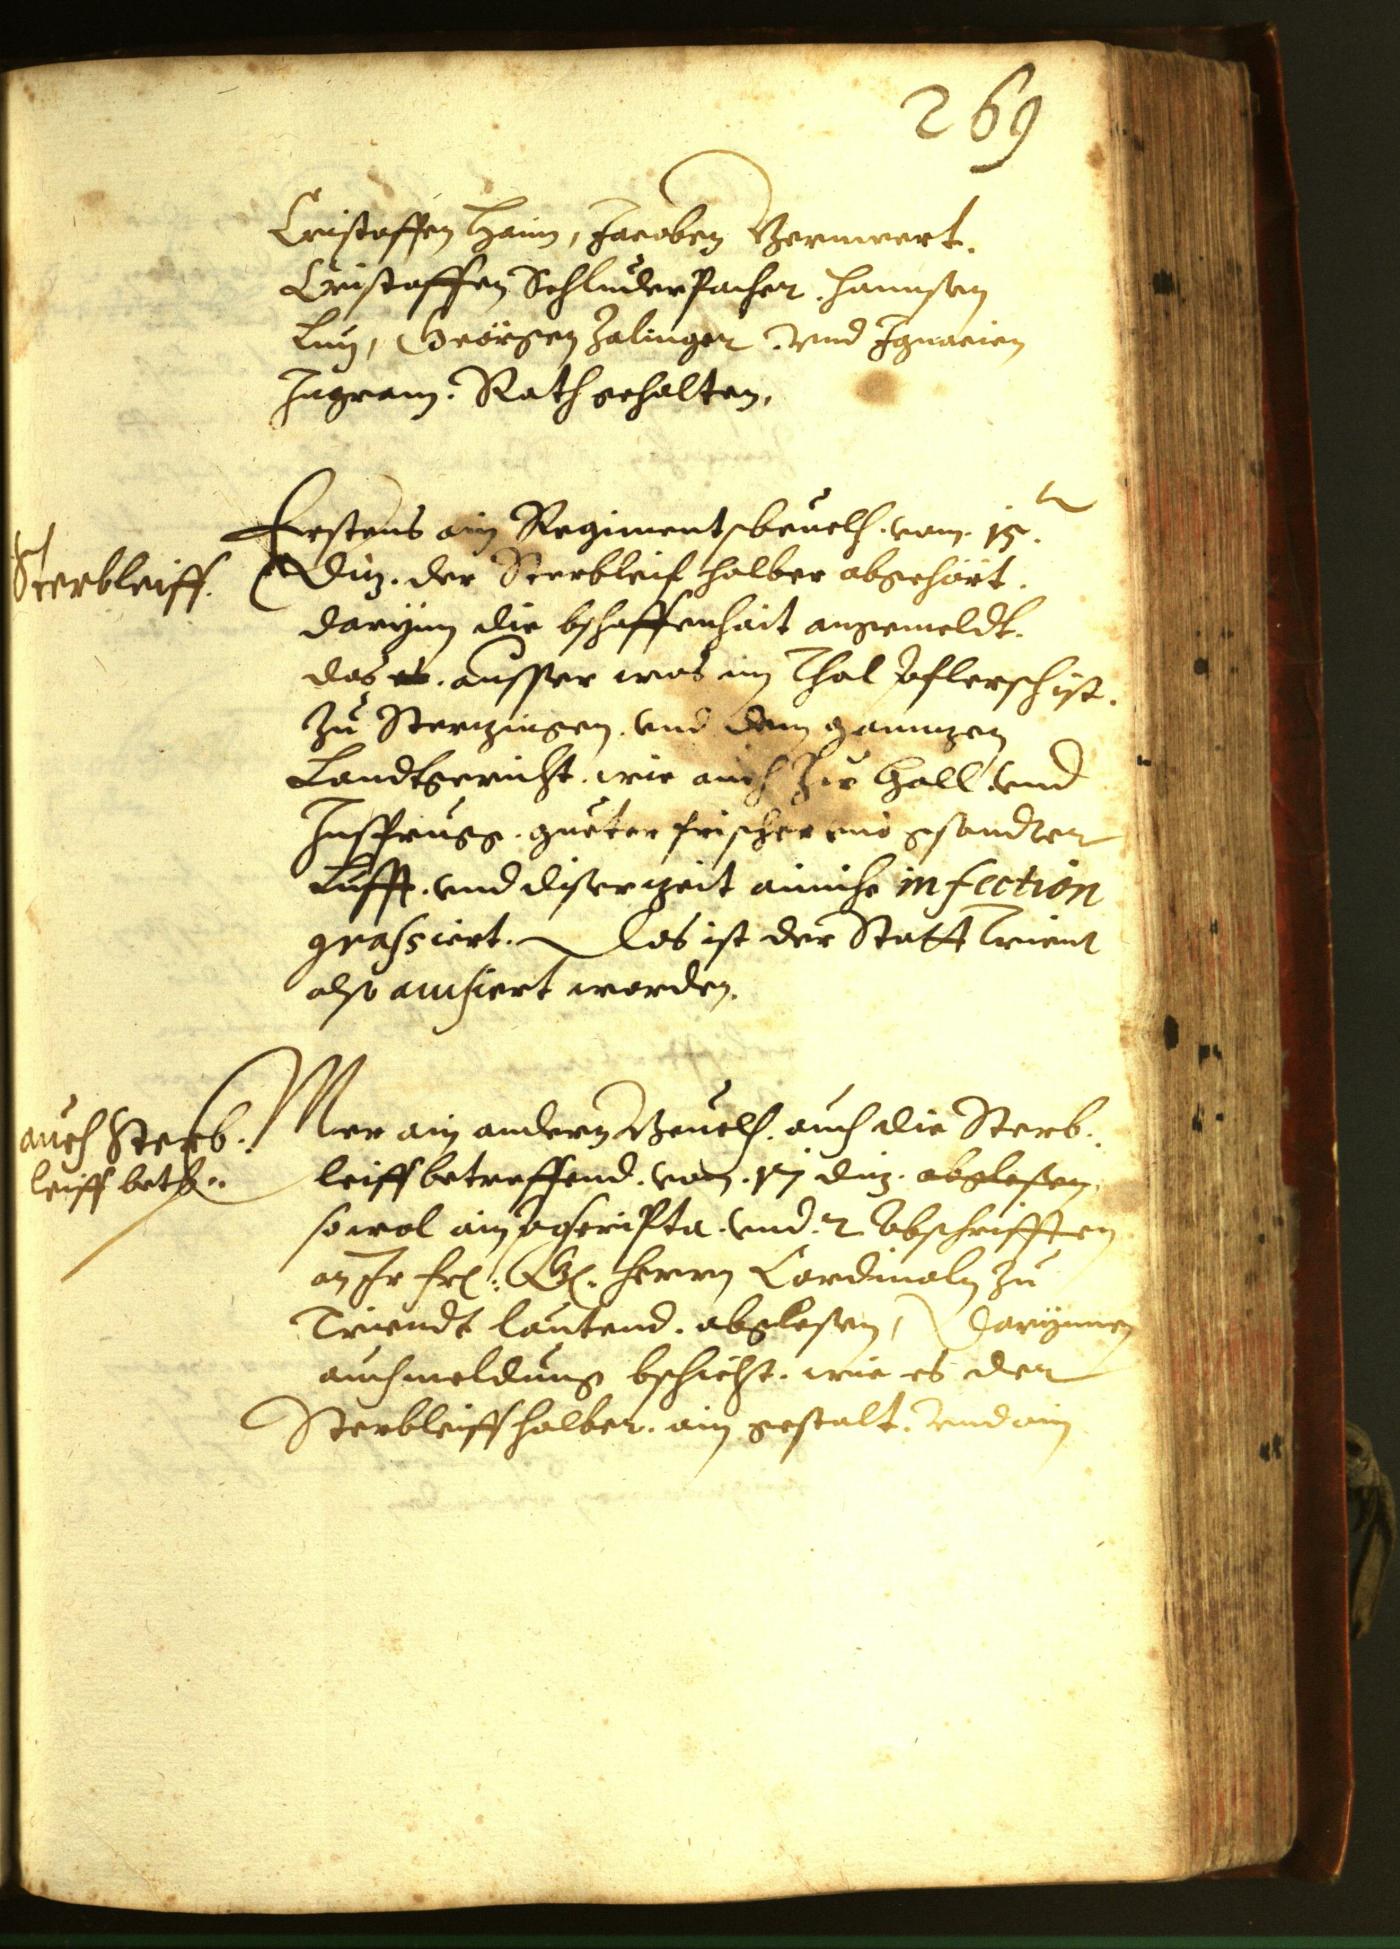 269
Cristoffen Haim, Jacoben Bernwert.
Cristoffen Schluderpacher. Hannsen
Lun, Geörgen Zalinger. vnd Ignacien
Ingram. Rath gehalten.
Sterbleiff.
Erstens ain Regimentsbeuelh. vom. 15.
diz. der Sterbleif halber abgehört.
darynn die bschaffenhait angemeldt.
das es. ausser was im Thal Pflersch ist.
zu Sterzingen. vnd dem ganntzen
Landtgericht. wie auch zu Hall vnd
Insprugg. gueter frischer vnd gsundter
Lufft. vnd diser zeit ainiche infection
grassiert. Das ist der Statt Trient
also auisiert worden.
auch Sterb.
leiff betr:
Mer ain andern Beuelh. auch die Sterb.
leiff betreffend. vom. 17 diz. abglesen,
sowol ain postscripta. vnd. 2 Abschrifften
an Ir frl: Gl. herrn Cardinaln zu
Triendt lautend. abglesen, Darynnen
auch meldung bschicht. wie es der
Sterbleiff halber. ain gestalt. vnd ain